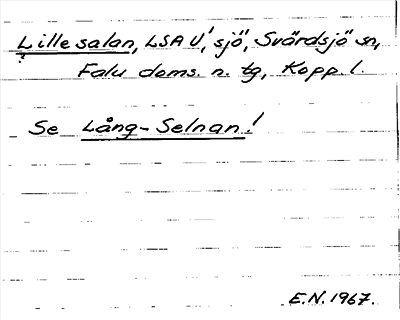 Lillesalan, LSA U,' sjö, Svärdsjö sn,
Falu doms. n. tg, Kopp. l.
Se Lång-Selnan!
E.N. 1967.